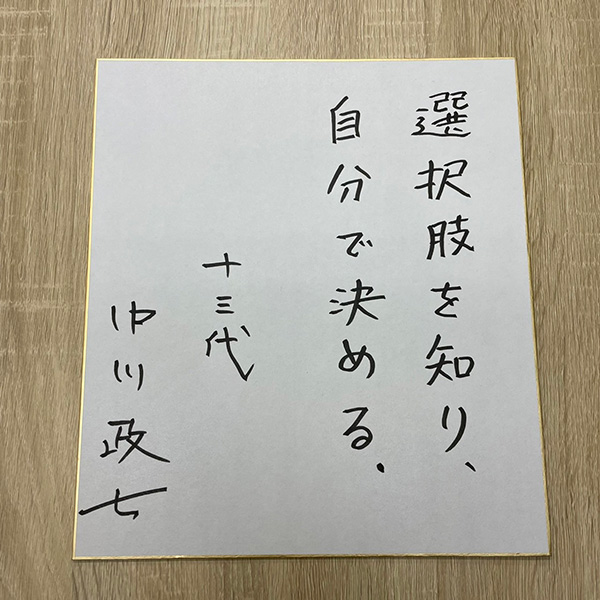 選択肢を知り、
自分で決める.
十三代
中川政七